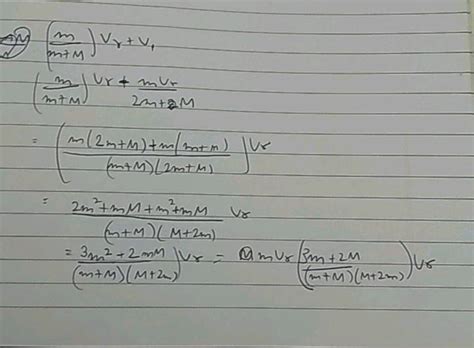 (m/(m+M)) Vr + V1
(m/(m+M)) Vr + mVr/(2m+M)
= ((m(2m+M)+m(m+M))/((m+M)(2m+M))) Vr
= (2m²+mM+m²+mM)/((m+M)(M+2m)) Vr
= (3m²+2mM)/((m+M)(M+2m)) Vr = mVr ((3m+2M)/((m+M)(M+2m))) Vr